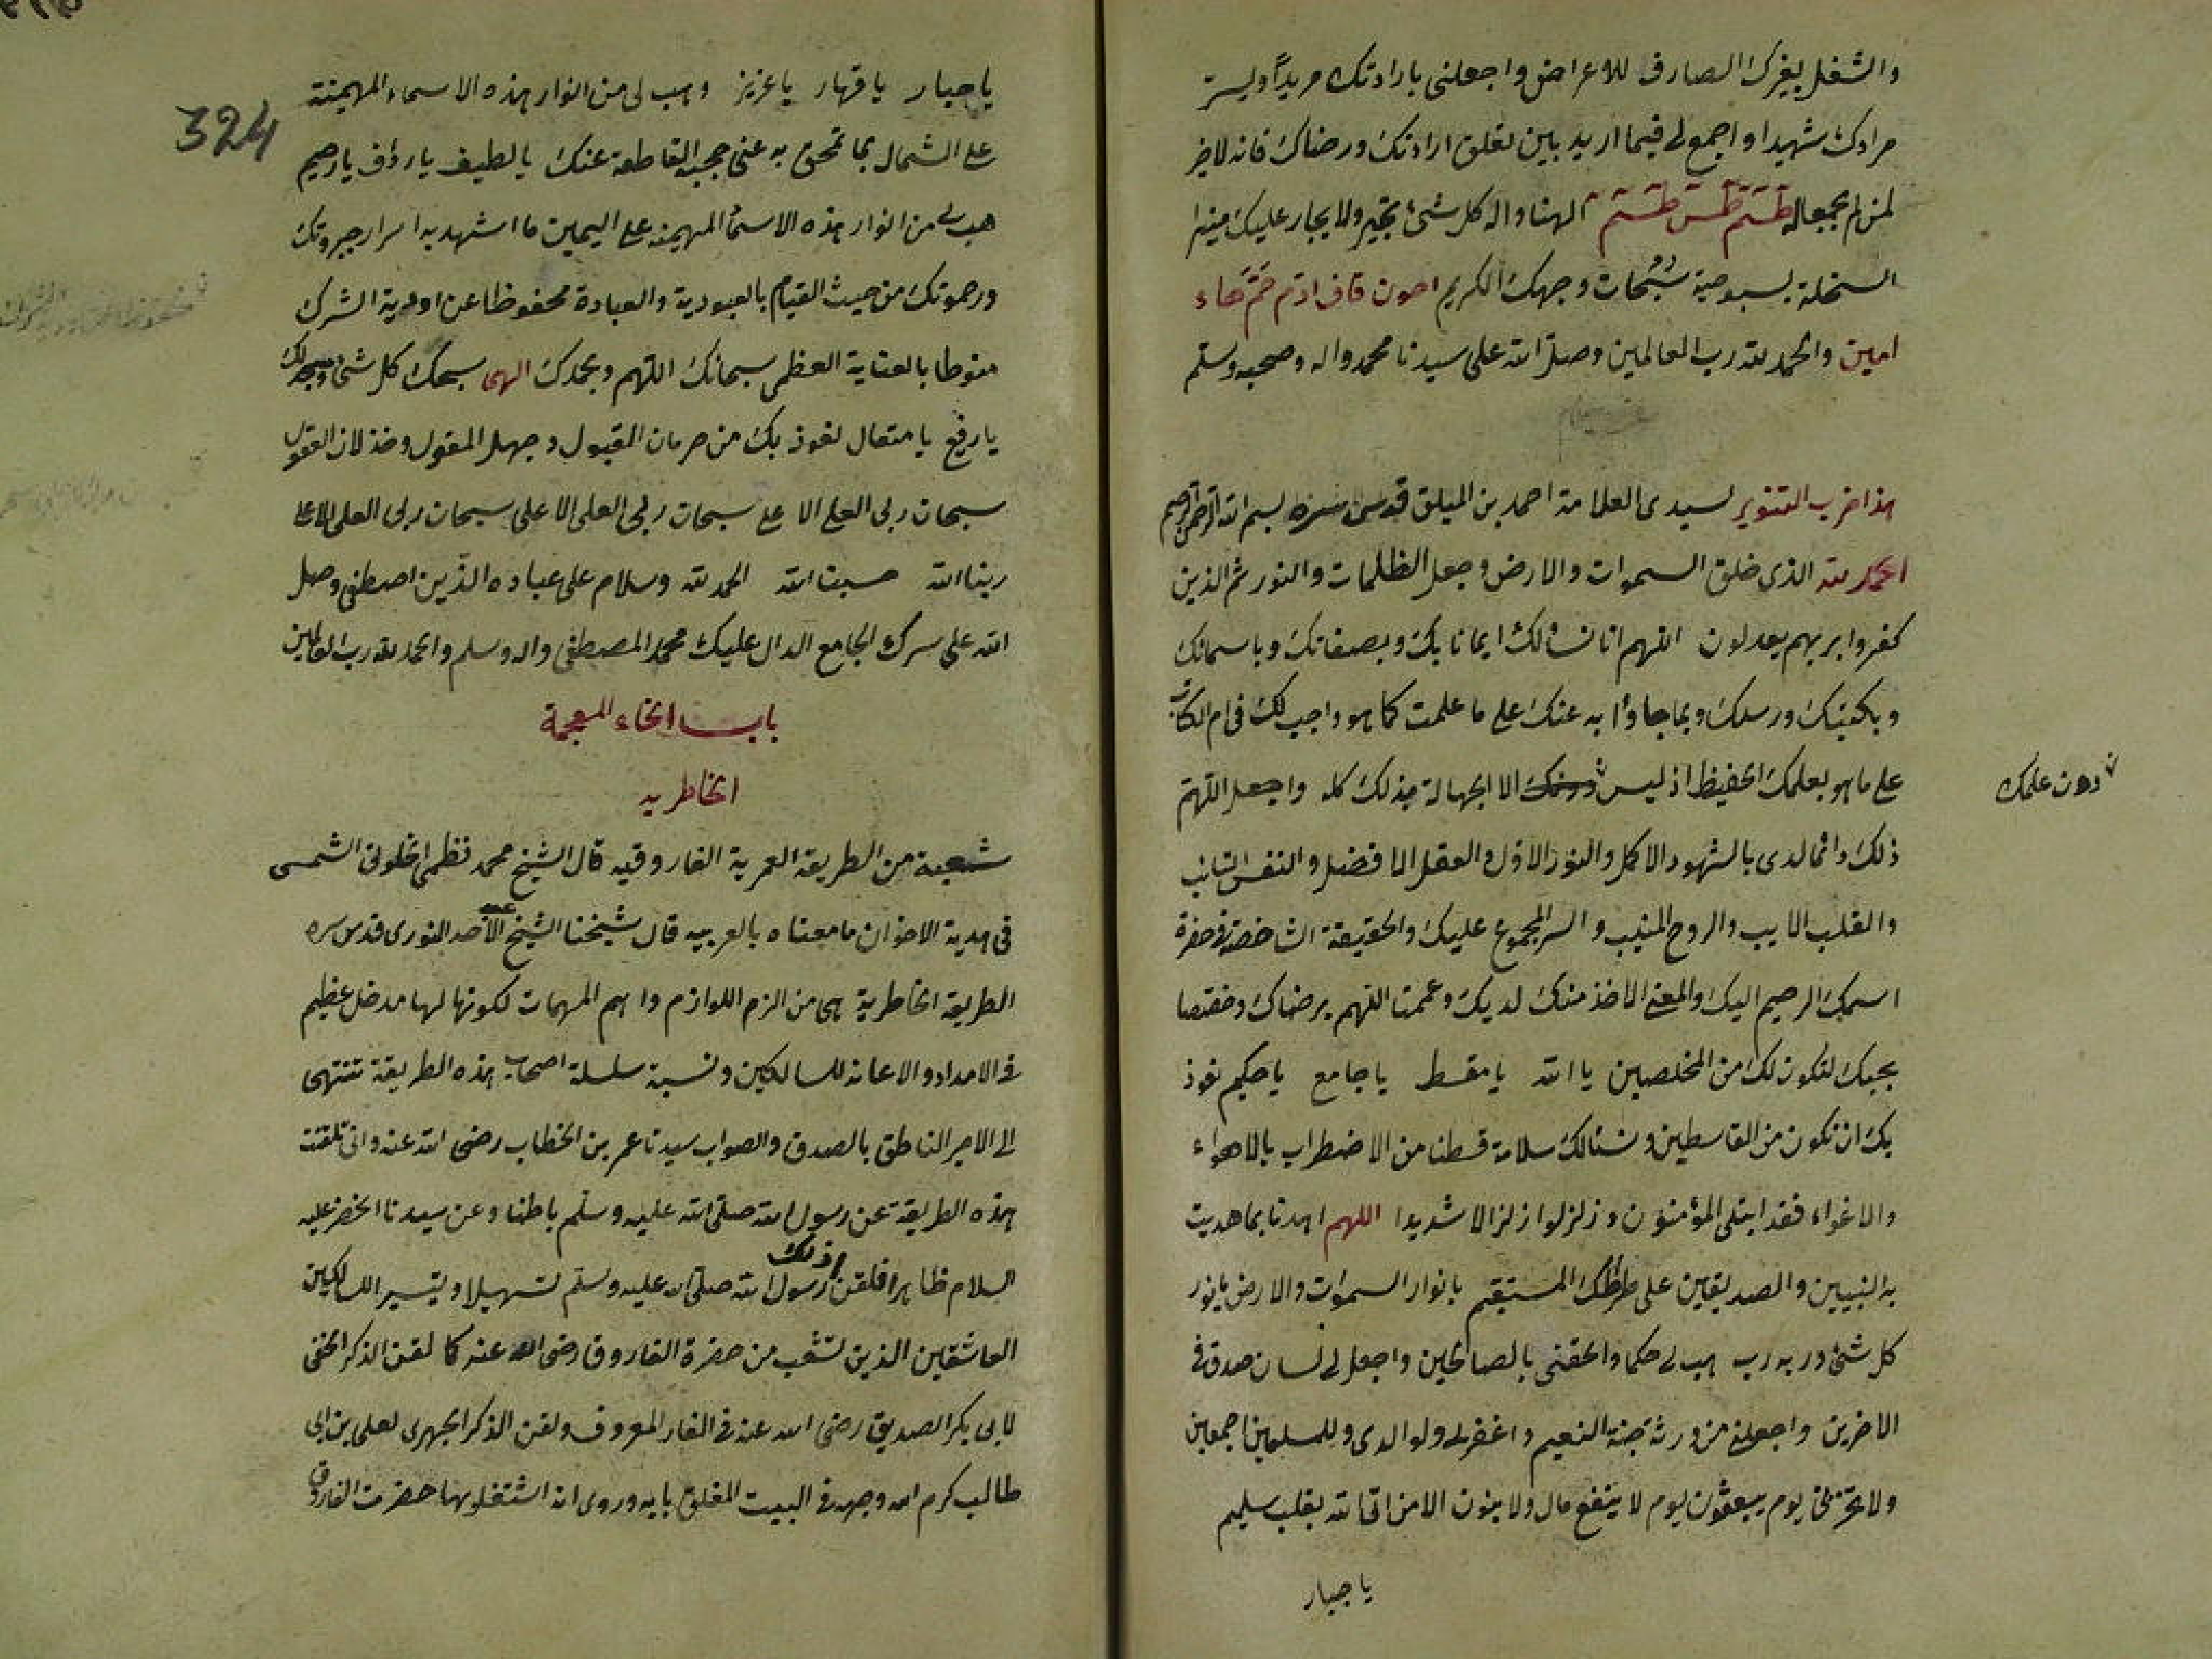 والشغل بغيرك الصارف للاعراض واجعلنى بارادتك مريداً وبسر
مرادك شهيدا واجمع لى فيما اريد بين تعلق ارادتك ورضاك فانه لاخير
لمن لم تجعاله طسم طس طسم الهنا واله كل شئ تجير ولا يجار عليك
بسبوحية سبحات وجهك الكريم احون قاف ادم حم هاء
امين والحمد لله رب العالمين وصلى الله على سيدنا محمد واله وصحبه وسلم
هذا حزب التنوير لسيدى العلامة احمد بن الميلق قدس سره بسم الله الرحمن الرحيم
الحمد لله الذى خلق السموات والارض وجعل الظلمات والنور ثم الذين
كفروا بربهم يعدلون اللهم انا نسألك ايمانا بك وبصفاتك وباسمائك
وبكتبك ورسلك وبما جاؤا به عنك على ما علمت كما هو واجب لك فى ام الكتاب
على ما هو بعلمك الحفيظ اذ ليس الا الجهالة بذلك كله واجعل اللهم
دون علمك
ذلك دائما لدى بالشهود الاكمل والنور الاول والعقل الافضل والنفس التائب
والقلب الايب والروح المنيب والسر المجموع عليك والحقيقة الشاخصة فى حضرة
اسمك الرحيم اليك والمعنى الاخذ منك لديك وعمنا اللهم برضاك وخصنا
بحبك لنكون لك من المخلصين يا الله يا مقسط يا جامع يا حكيم نعوذ
بك ان نكون من القاسطين ونسئالك سلامة قسطنا من الاضطراب بالاهواء
والاغواء فقد ابتلى المؤمنون وزلزلوا زلزالا شديدا اللهم اهدنا بما هديت
به النبيين والصديقين على صراطك المستقيم يا نوار السموات والارض يا نور
كل شئ وربه رب هب لى حكما والحقنى بالصالحين واجعل لى لسان صدق فى
الاخرين واجعلنى من ورثة جنة النعيم واغفر لى ولوالدى وللمسلمين اجمعين
ولا تخزنى يوم يبعثون يوم لا ينفع مال ولا بنون الا من اتى الله بقلب سليم
يا جبار
324
يا جبار يا قهار يا عزيز وهب لى من انوار هذه الاسماء المهيمنة
على الشمال بما تمحق به عنى حجبه القاطعة عنك يا لطيف يا رؤف يا رحيم
هب لى من انوار هذه الاسماء المهيمنه على اليمين ما اشهد به اسرار جبروتك
ورحموتك من حيث القيام بالعبودية والعبادة محفوظا عن اودية الشرك
منوطا بالعناية العظمى سبحانك اللهم وبحمدك الهى سبحك كل شئ
يا رفيع يا متعال نعوذ بك من حرمان القبول وجهل المقول وخذلان العقول
سبحان ربى العلى الاعلى سبحان ربى العلى الاعلى سبحان ربى العلى الاعلى
ربنا الله حسبنا الله الحمد لله وسلام على عباده الذين اصطفى وصل
الله على سرك الجامع الدال عليك محمد المصطفى واله وسلم والحمد لله رب العالمين
باب الخاء المعجمة
الخاطريه
شعبة من الطريقة العمرية الفاروقيه قال الشيخ محمد نظمى الخلوتى الشمسى
فى هدية الاخوان ما معناه بالعربيه قال شيخنا الشيخ عبد الاحد النورى قدس سره
الطريقة الخاطرية هى من الزم اللوازم واهم المهمات لكونها لها مدخل عظيم
فى الامداد والاعانه للسالكين ونسبة سلسلة اصحاب هذه الطريقة تنتهى
الى الامير الناطق بالصدق والصواب سيدنا عمر بن الخطاب رضى الله عنه وانى تلقنت
هذه الطريقة عن رسول الله صلى الله عليه وسلم باطنا وعن سيدنا الخضر عليه
السلام ظاهرا فلقن ذلك رسول الله صلى الله عليه وسلم تسهيلا وتيسيرا للسالكين
العاشقين الذين تشعب من حضرة الفاروق رضى الله عنه كما لقن الذكر الخفى
لابى بكر الصديق رضى الله عنه فى الغار المعروف ولقن الذكر الجهرى لعلى بن ابى
طالب كرم الله وجهه فى البيت المغلق بابه وروى انه اشتغلوبها حضرت الفاروق